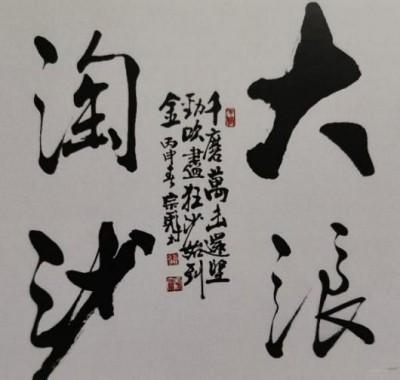 大浪
淘沙
千磨萬击還堅
勁吹盡狂沙始到
金丙申春宗